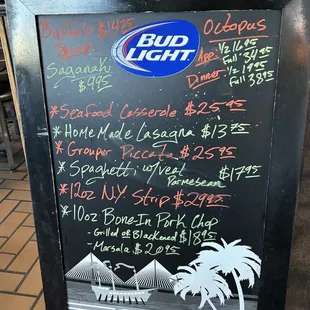 $14.75
Saganaki
$9.95
BUD
LIGHT
Octopus
App: 1/2 16.95
Full 34.95
Dinner: 1/2 19.95
Full 38.95
* Seafood Casserole $25.95
* Home Made Lasagna $13.75
* Grouper Piccata $25.95
* Spaghetti w/veal $17.95
Parmesean
* 12oz N.Y. Strip $29.95
* 10oz Bone-In Pork Chop
- Grilled or Blackened $18.95
- Marsala $20.95